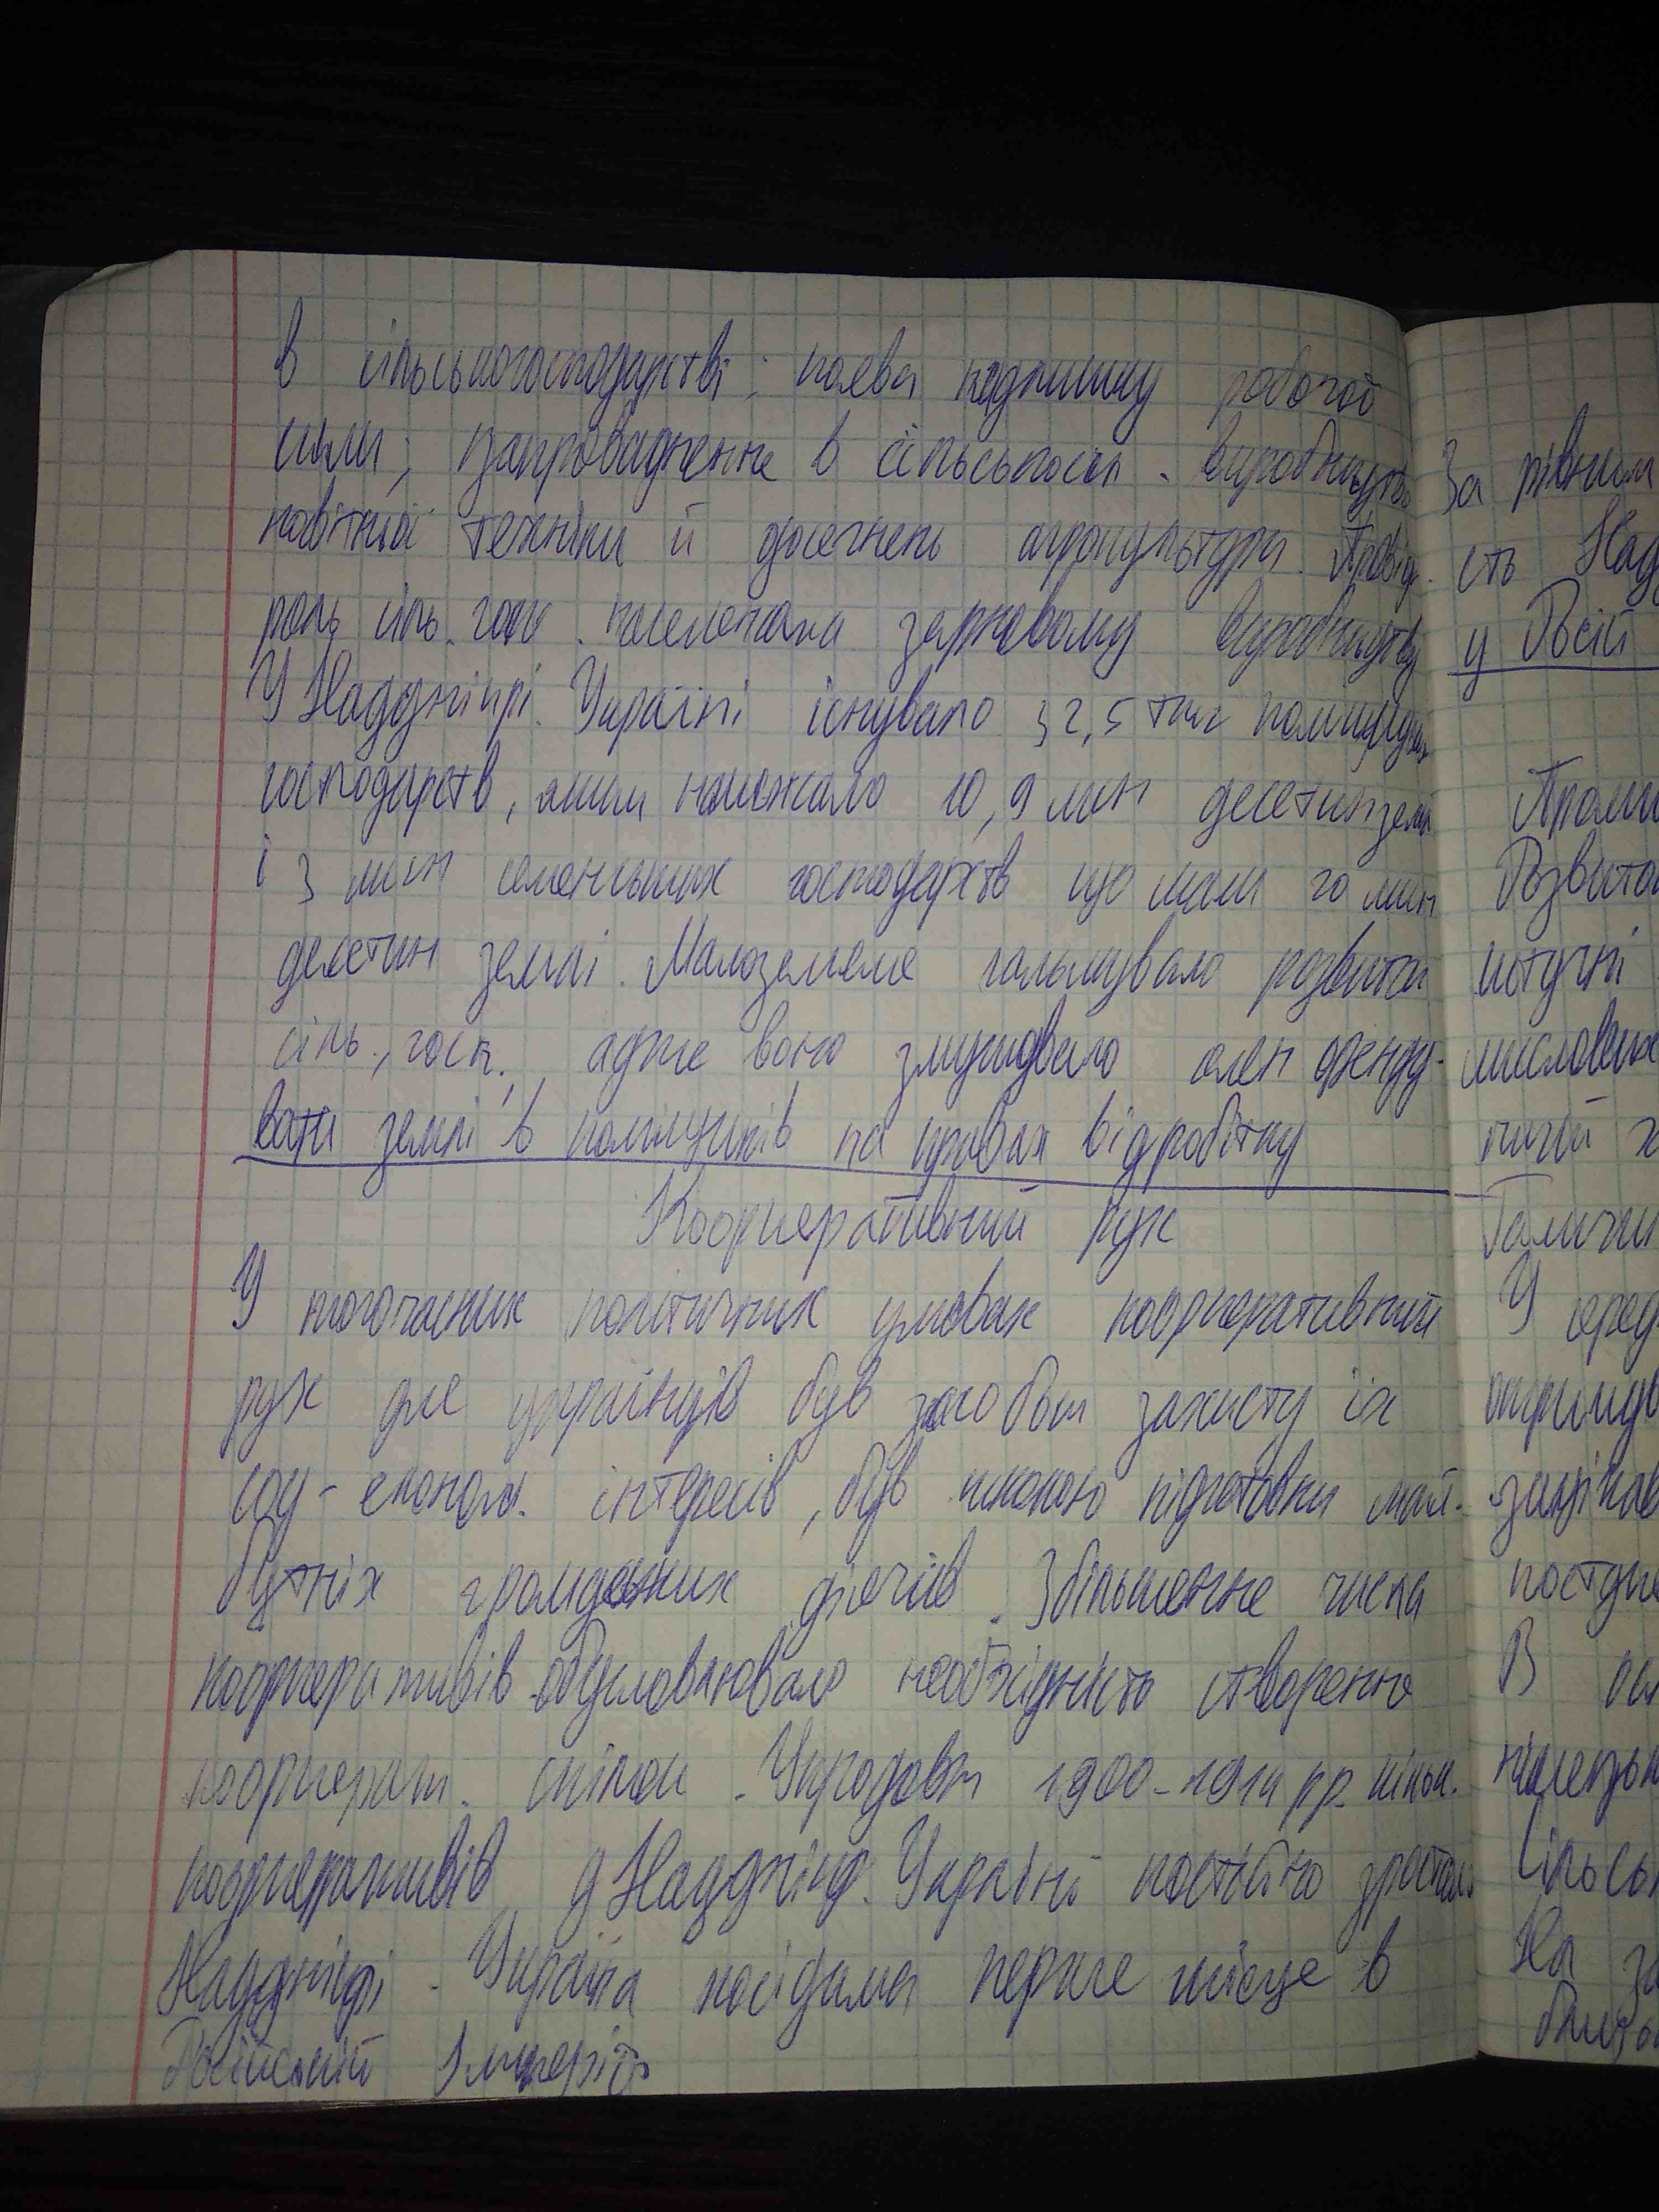 в сільськогосподарстві; поява надлишку робочої
сили; запровадження в сільськогосп. виробництво
новітньої техніки й досягнень агрокультури. Провідн.
роль сіль. госп. належала зерновому виробництву
У Наддніпрі. Україні існувало 32,5 тис поміщицьких
господарств, яким належало 10,9 млн десятин землі
і 3 млн селянських господарств що мали 20 млн
десятин землі. Малоземелля гальмувало розвиток
сіль., госп., адже воно змушувало селян оренду-
вати землі в поміщиків на правах відробітку
Кооперативний рух
У тогочасних політичних умовах кооперативний
рух для українців був засобом захисту їх
соц-економ. інтересів, був школою підготовки май-
бутніх громадських діячів. Збільшення числа
кооперативів обумовлювало необхідність створення
кооперат. спілок. Упродовж 1900-1914 рр. кільк.
кооперативів у Наддніпр. Україні постійно зростала
Наддніпрі. Україна посідала перше місце в
Російській Імперії
За рівним
сть Над
у Росій
Проми
Розвито
штучні
мислових
ничий х
Галичи
У серед
отримув
зацікав
поступ
В
німецьк
Сільськ
На за
близь